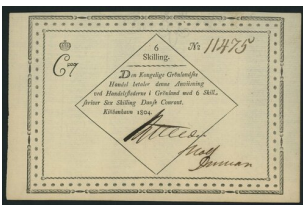 6
Skilling.
№ 11475
C 7
Den Kongelige Grönlandske
Handel betaler denne Anviisning
ved Handelsstederne i Grönland med 6 Skill.,
skriver Sex Skilling Dansk Courant.
Kiöbenhavn 1804.